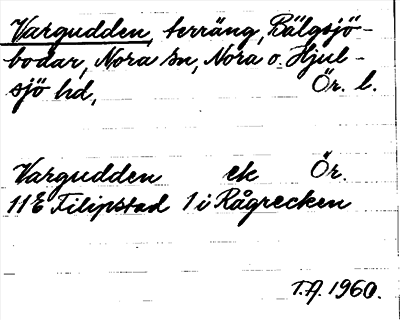 Vargudden, terräng, Bälgsjö-
bodar, Nora sn, Nora o. Hjul-
sjö hd, Ör. l.
Vargudden ek Ör.
11E Filipstad 1 i Rågrecken
T.A. 1960.